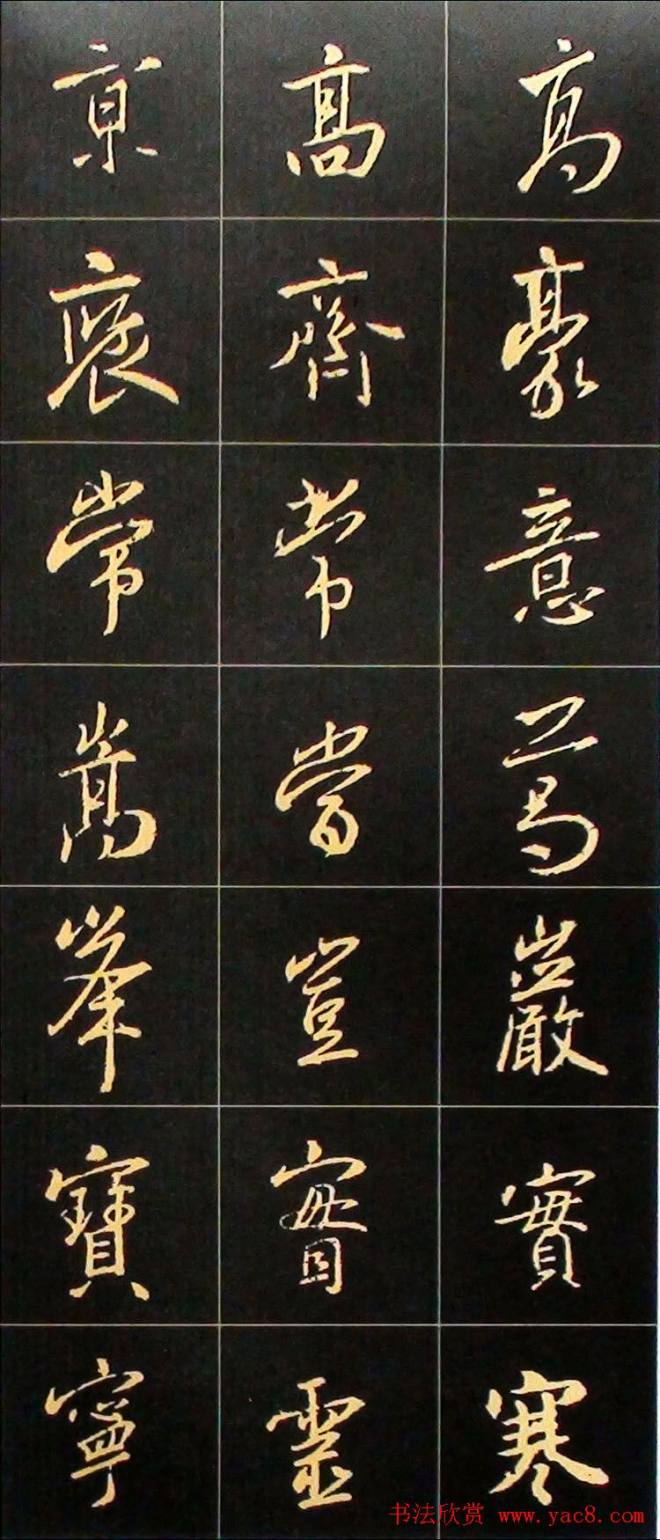 高豪意巖實寒
高齊常當豈實靈
京常嵩峯寶寧
书法欣赏 www.yac8.com